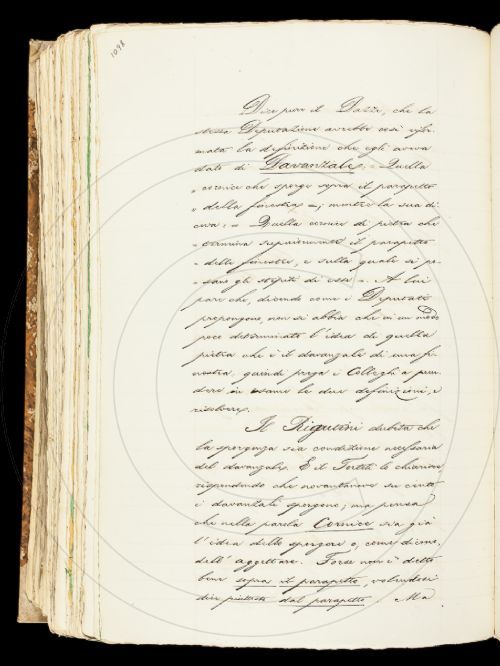 1098
Dice pure il Dazzi, che la
stessa Deputazione avrebbe così rifor-
mata la definizione che egli aveva
dato di Davanzale: = Quella
= cornice che sporge sopra il parapetto
= della finestra =; mentre la sua di-
ceva: = Quella cornice di pietra che
= termina superiormente il parapetto
= delle finestre, e sulla quale si po-
= sano gli stipiti di esse =. A lui
pare che, dicendo come i Deputati
propongono, non si abbia che in un modo
poco determinato l'idea di quella
pietra che è il davanzale di una fi-
nestra, quindi prega i Colleghi a pren-
dere in esame le due definizioni, e
risolvere.
Il Rigutini dubita che
la sporgenza sia condizione necessaria
del davanzale. E il Tortoli lo chiarisce
rispondendo che novantanove su cento
i davanzali sporgono; ma pensa
che nella parola Cornice sia già
l'idea dello sporgere o, come dicono,
dell'aggettare. Forse non è detto
bene sopra il parapetto, volendosi
dire piuttosto dal parapetto. Ma